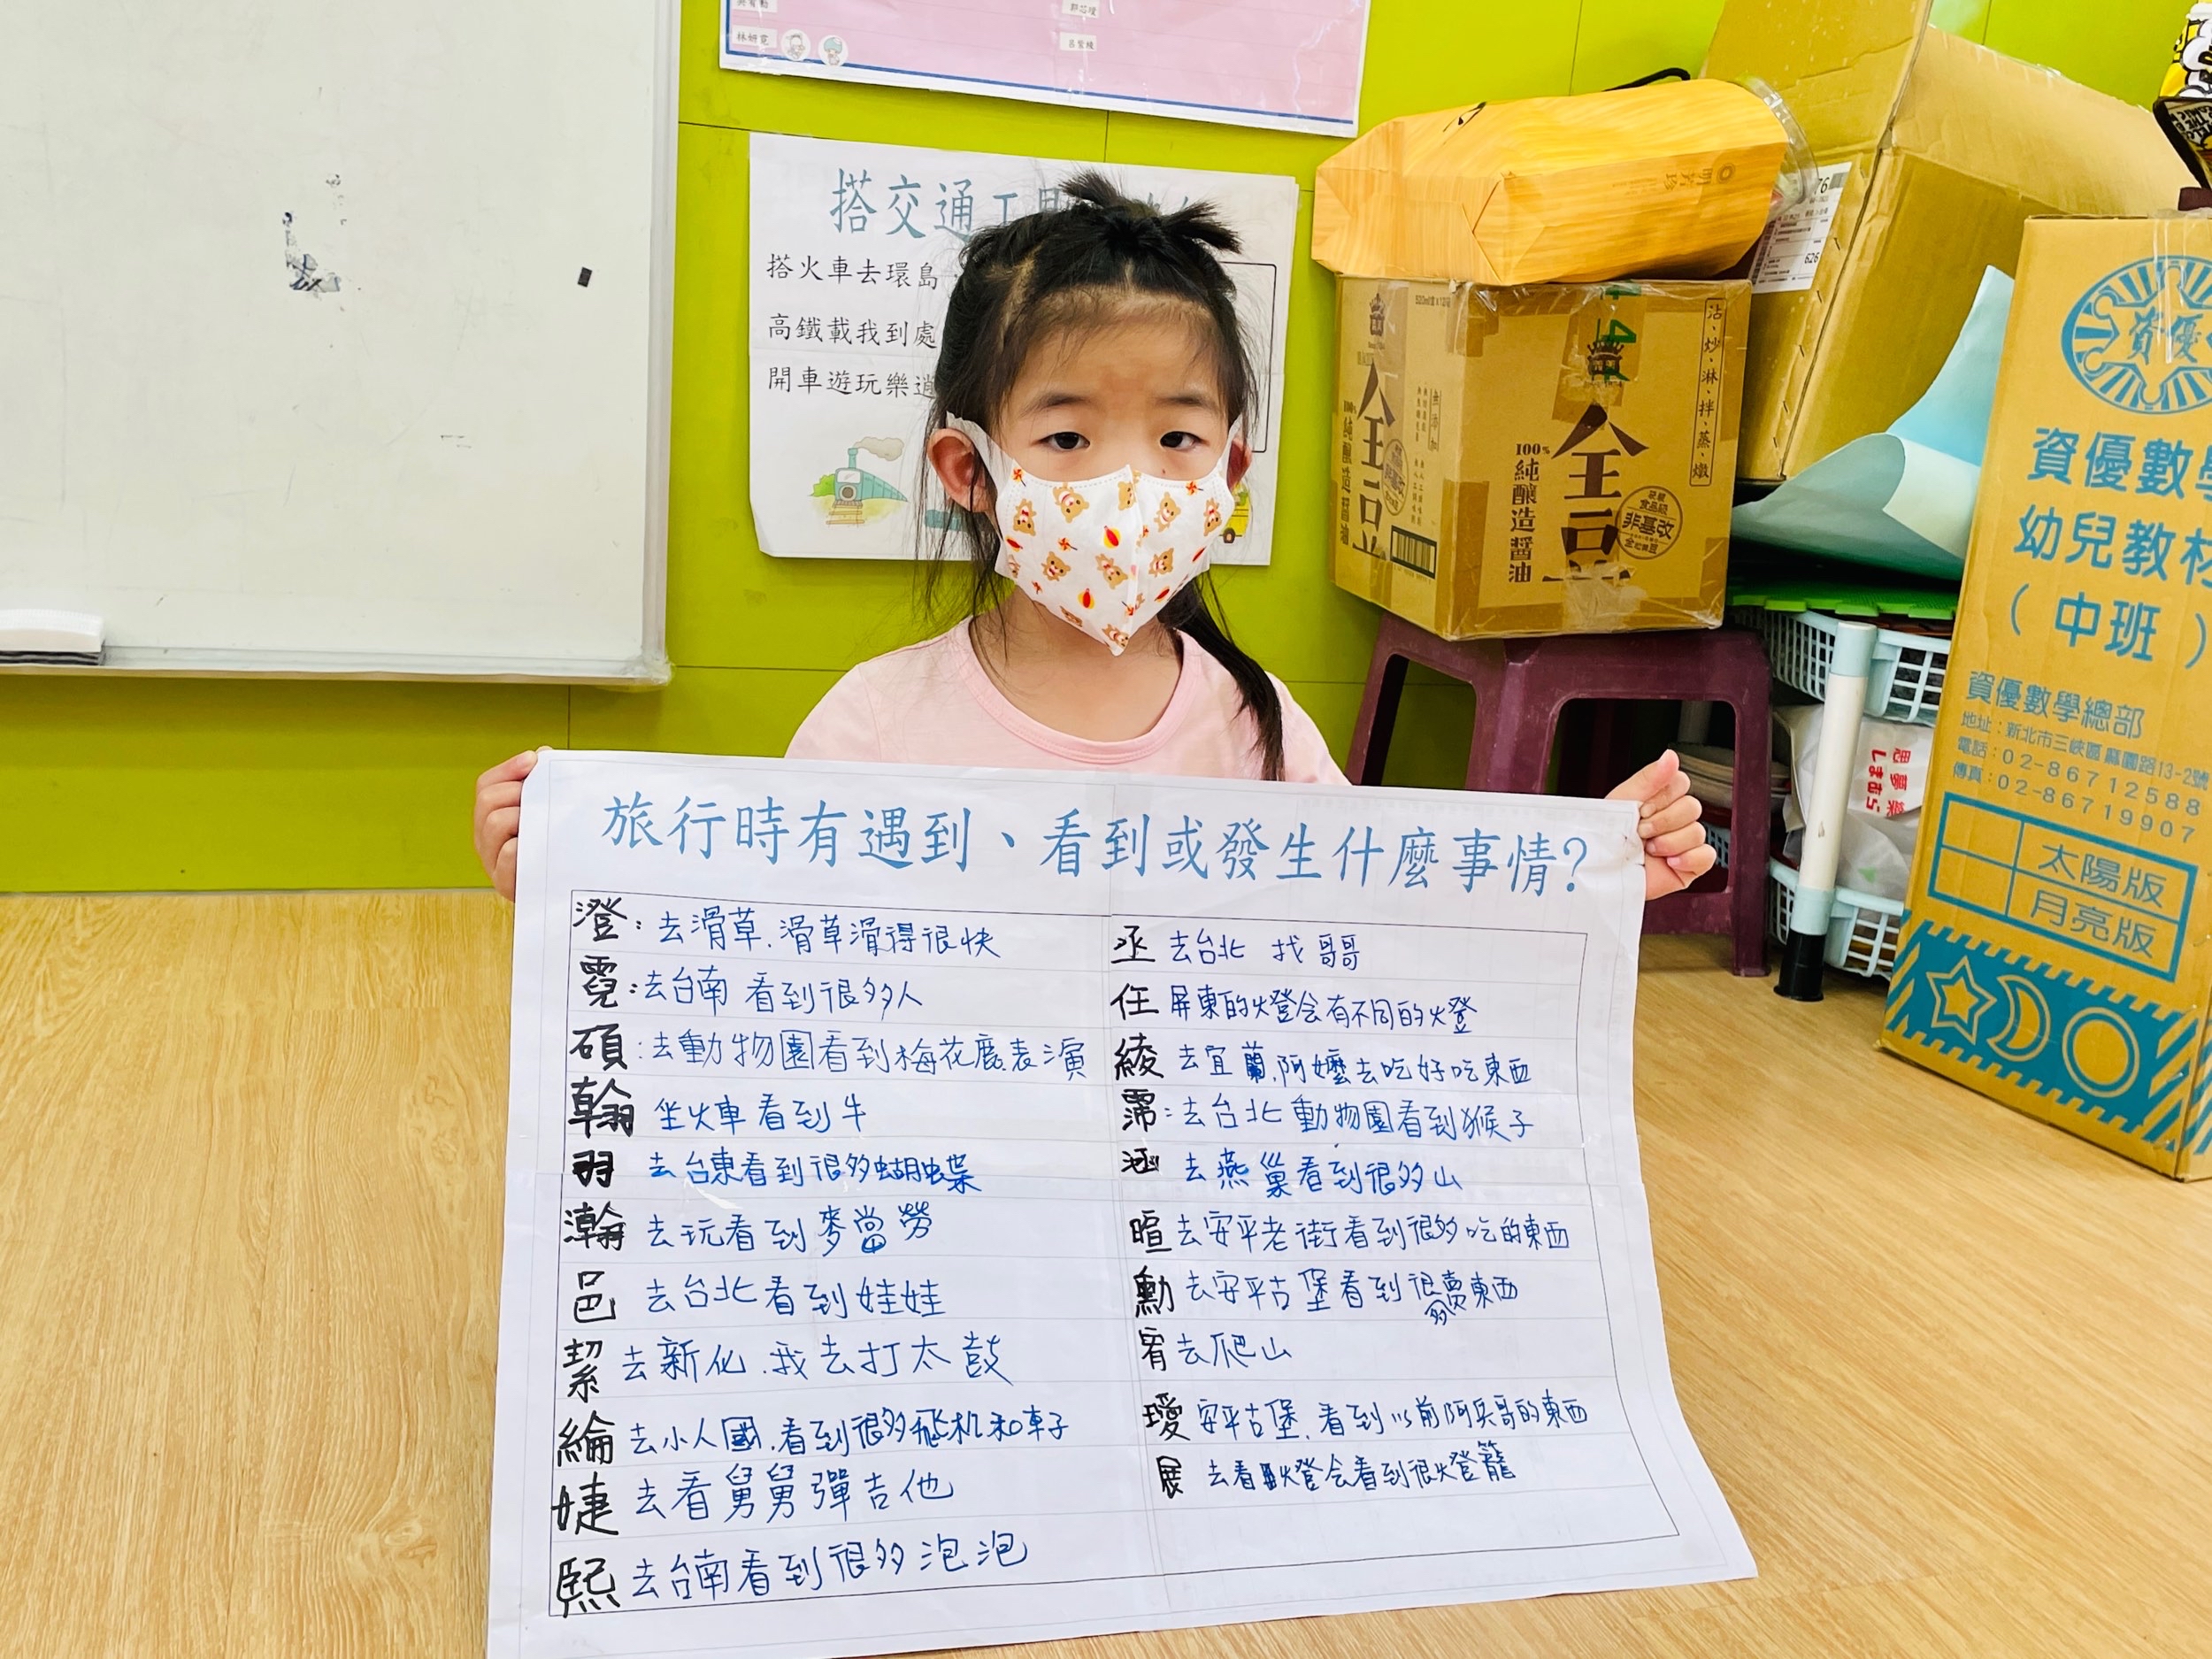 林妍霓
搭交通工具
搭火車去環島
高鐵載我到處
開車遊玩樂逍
沾、炒、淋、拌、蒸、燉
100%
純釀造醬油
全豆
非基改
無添加
100%
純釀造醬油
76
626
資優
資優數學
幼兒教材
(中班)
資優數學總部
地址:新北市三峽區麻園路13-2號
電話:02-86712588
傳真:02-86719907
太陽版
月亮版
旅行時有遇到、看到或發生什麼事情?
澄:去滑草.滑草滑得很快
霓:去台南看到很多人
碩:去動物園看到梅花鹿表演
翰 坐火車看到牛
羽 去台東看到很多蝴蝶
瀚 去玩看到麥當勞
邑 去台北看到娃娃
絜 去新化.我去打太鼓
綸 去小人國.看到很多飛机和車子
婕 去看舅舅彈吉他
熙 去台南看到很多泡泡
丞 去台北 找哥哥
任 屏東的燈会有不同的燈
綾 去宜蘭.阿嬤去吃好吃東西
霈:去台北動物園看到猴子
涵 去燕巢看到很多山
暄 去安平老街看到很多吃的東西
勳 去安平古堡看到很多賣東西
宥 去爬山
璦 安平古堡.看到以前阿兵哥的東西
展 去看燈会看到很燈籠